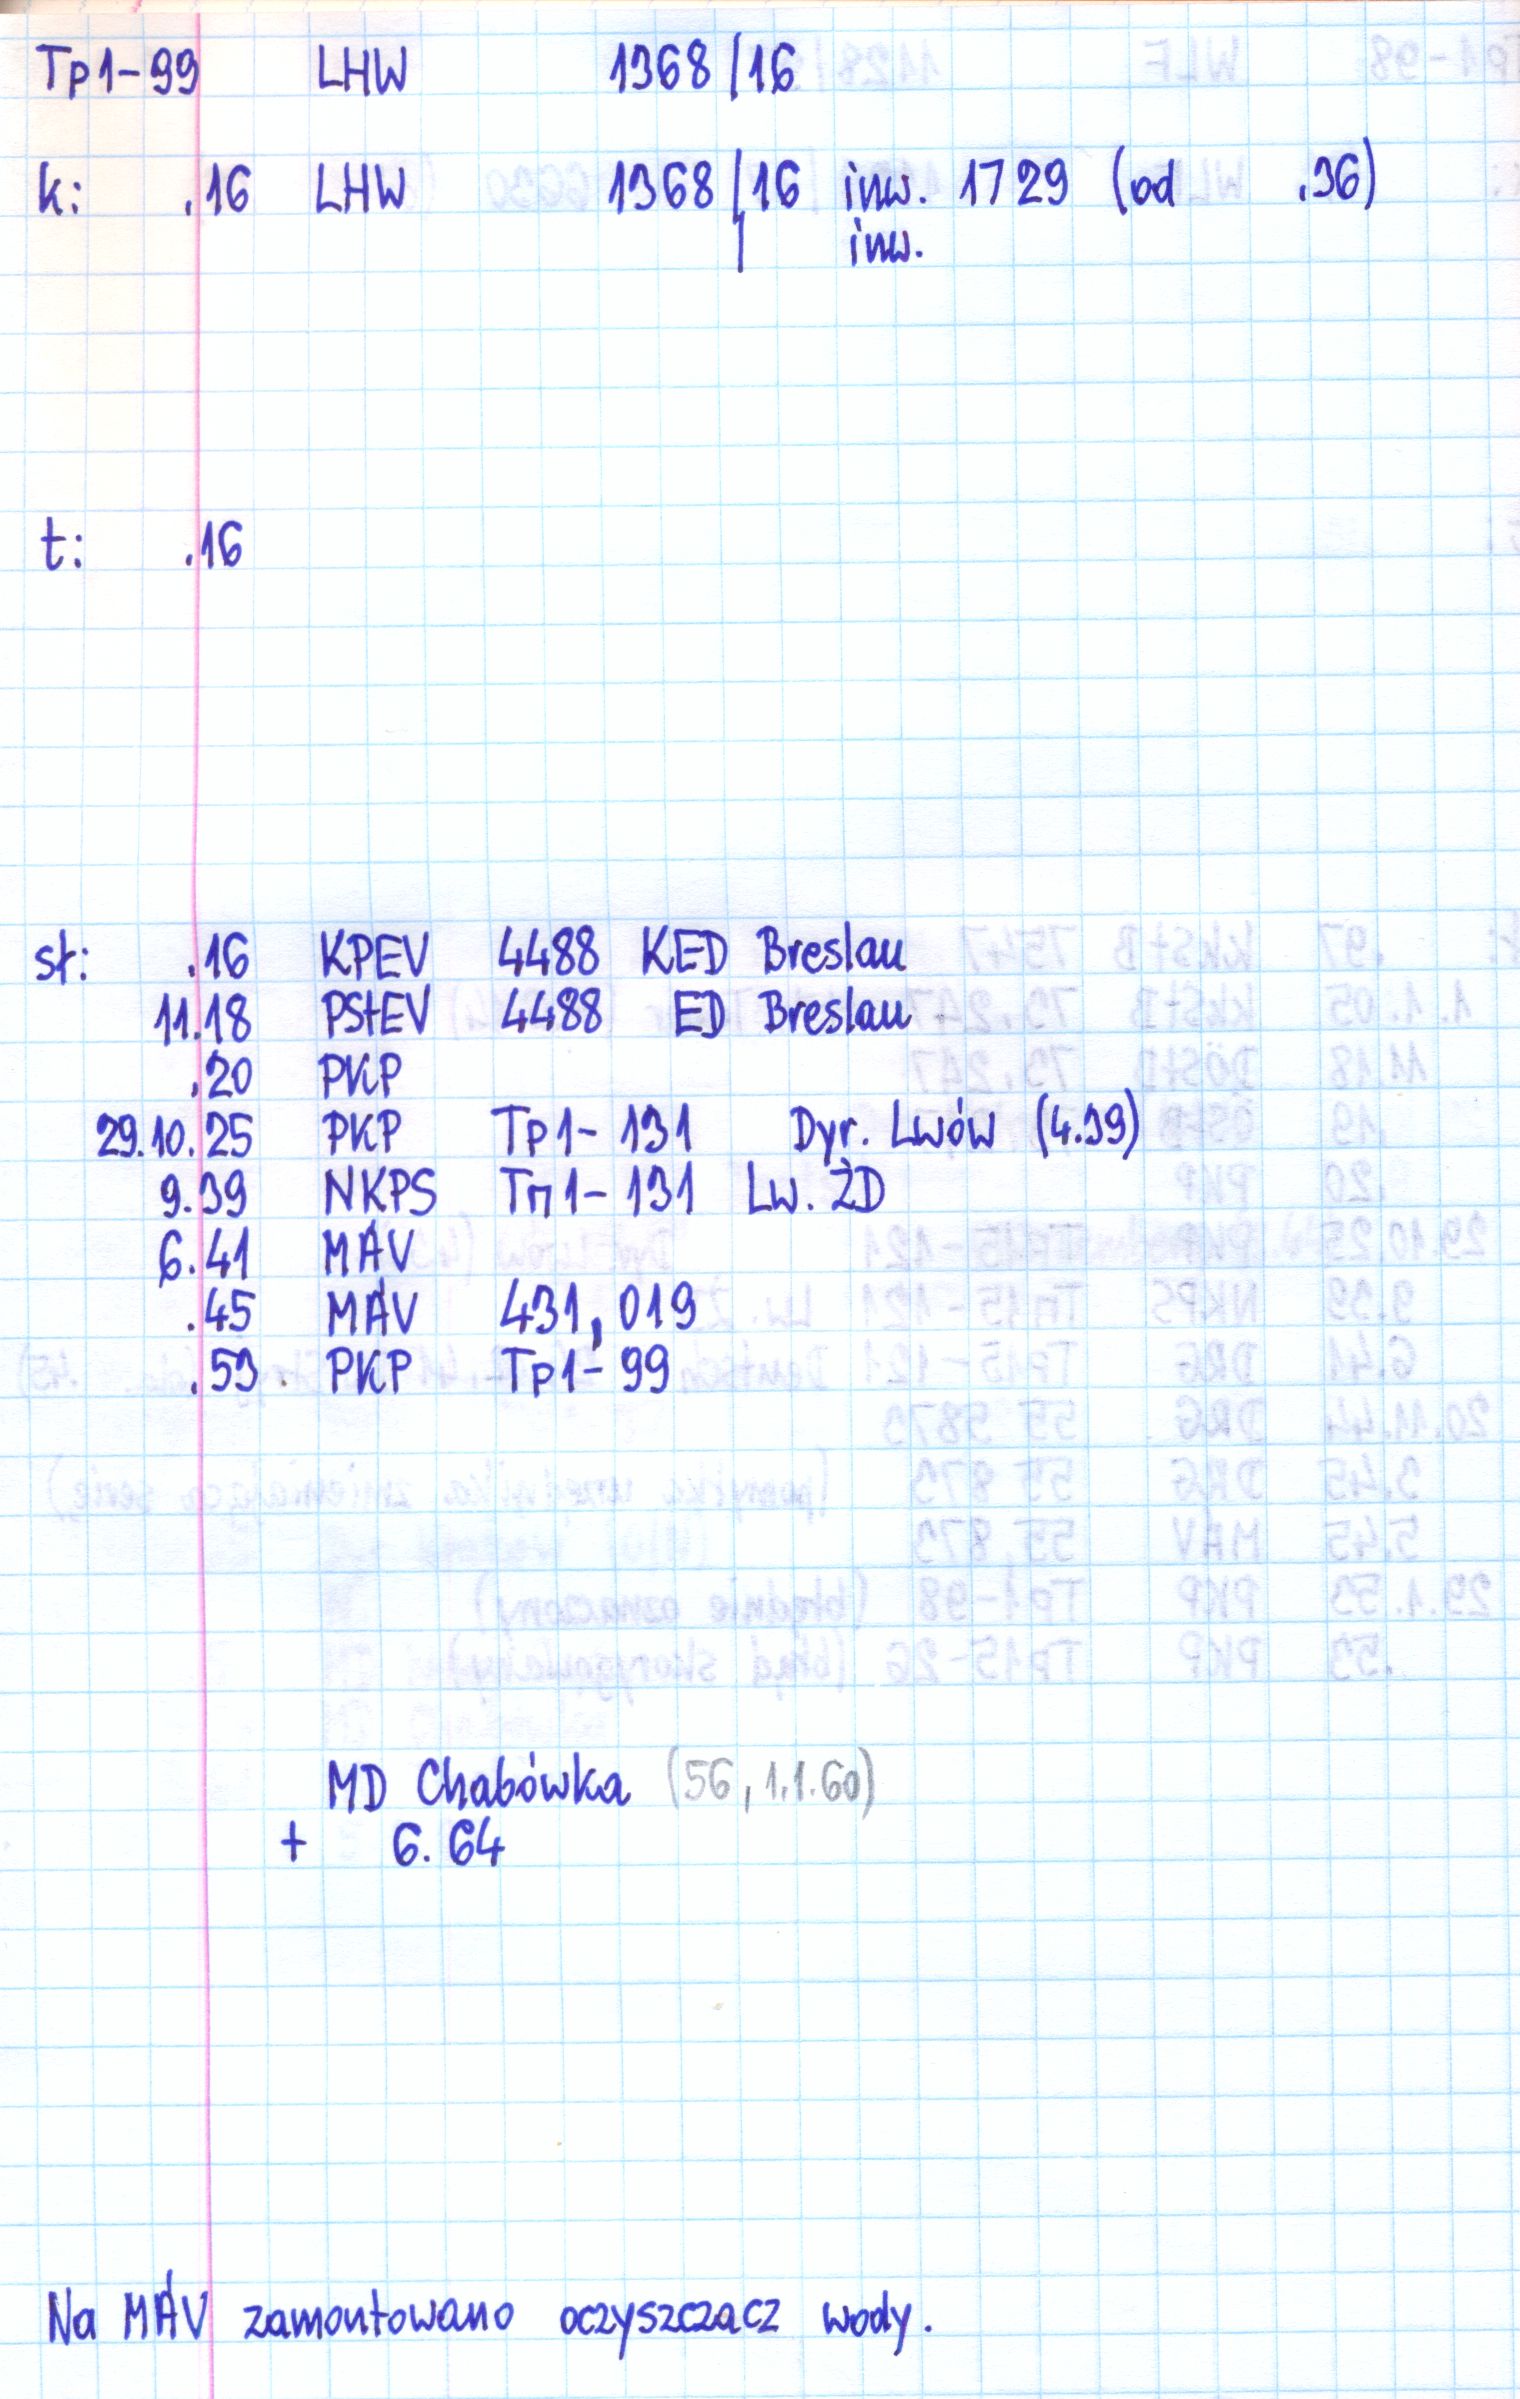 Tp1-99 LHW 1368/16
k: .16 LHW 1368/16 inw. 1729 (od .36)
/ inw.
t: .16
st: .16 KPEV 4488 KED Breslau
11.18 PStEV 4488 ED Breslau
.20 PKP
29.10.25 PKP Tp1-131 Dyr. Lwów (4.39)
9.39 NKPS Тп1-131 Lw. ŻD
6.41 MÁV
.45 MÁV 431,019
.53. PKP Tp1-99
MD Chabówka (56, 1.1.60)
+ 6.64
Na MÁV zamontowano oczyszczacz wody.